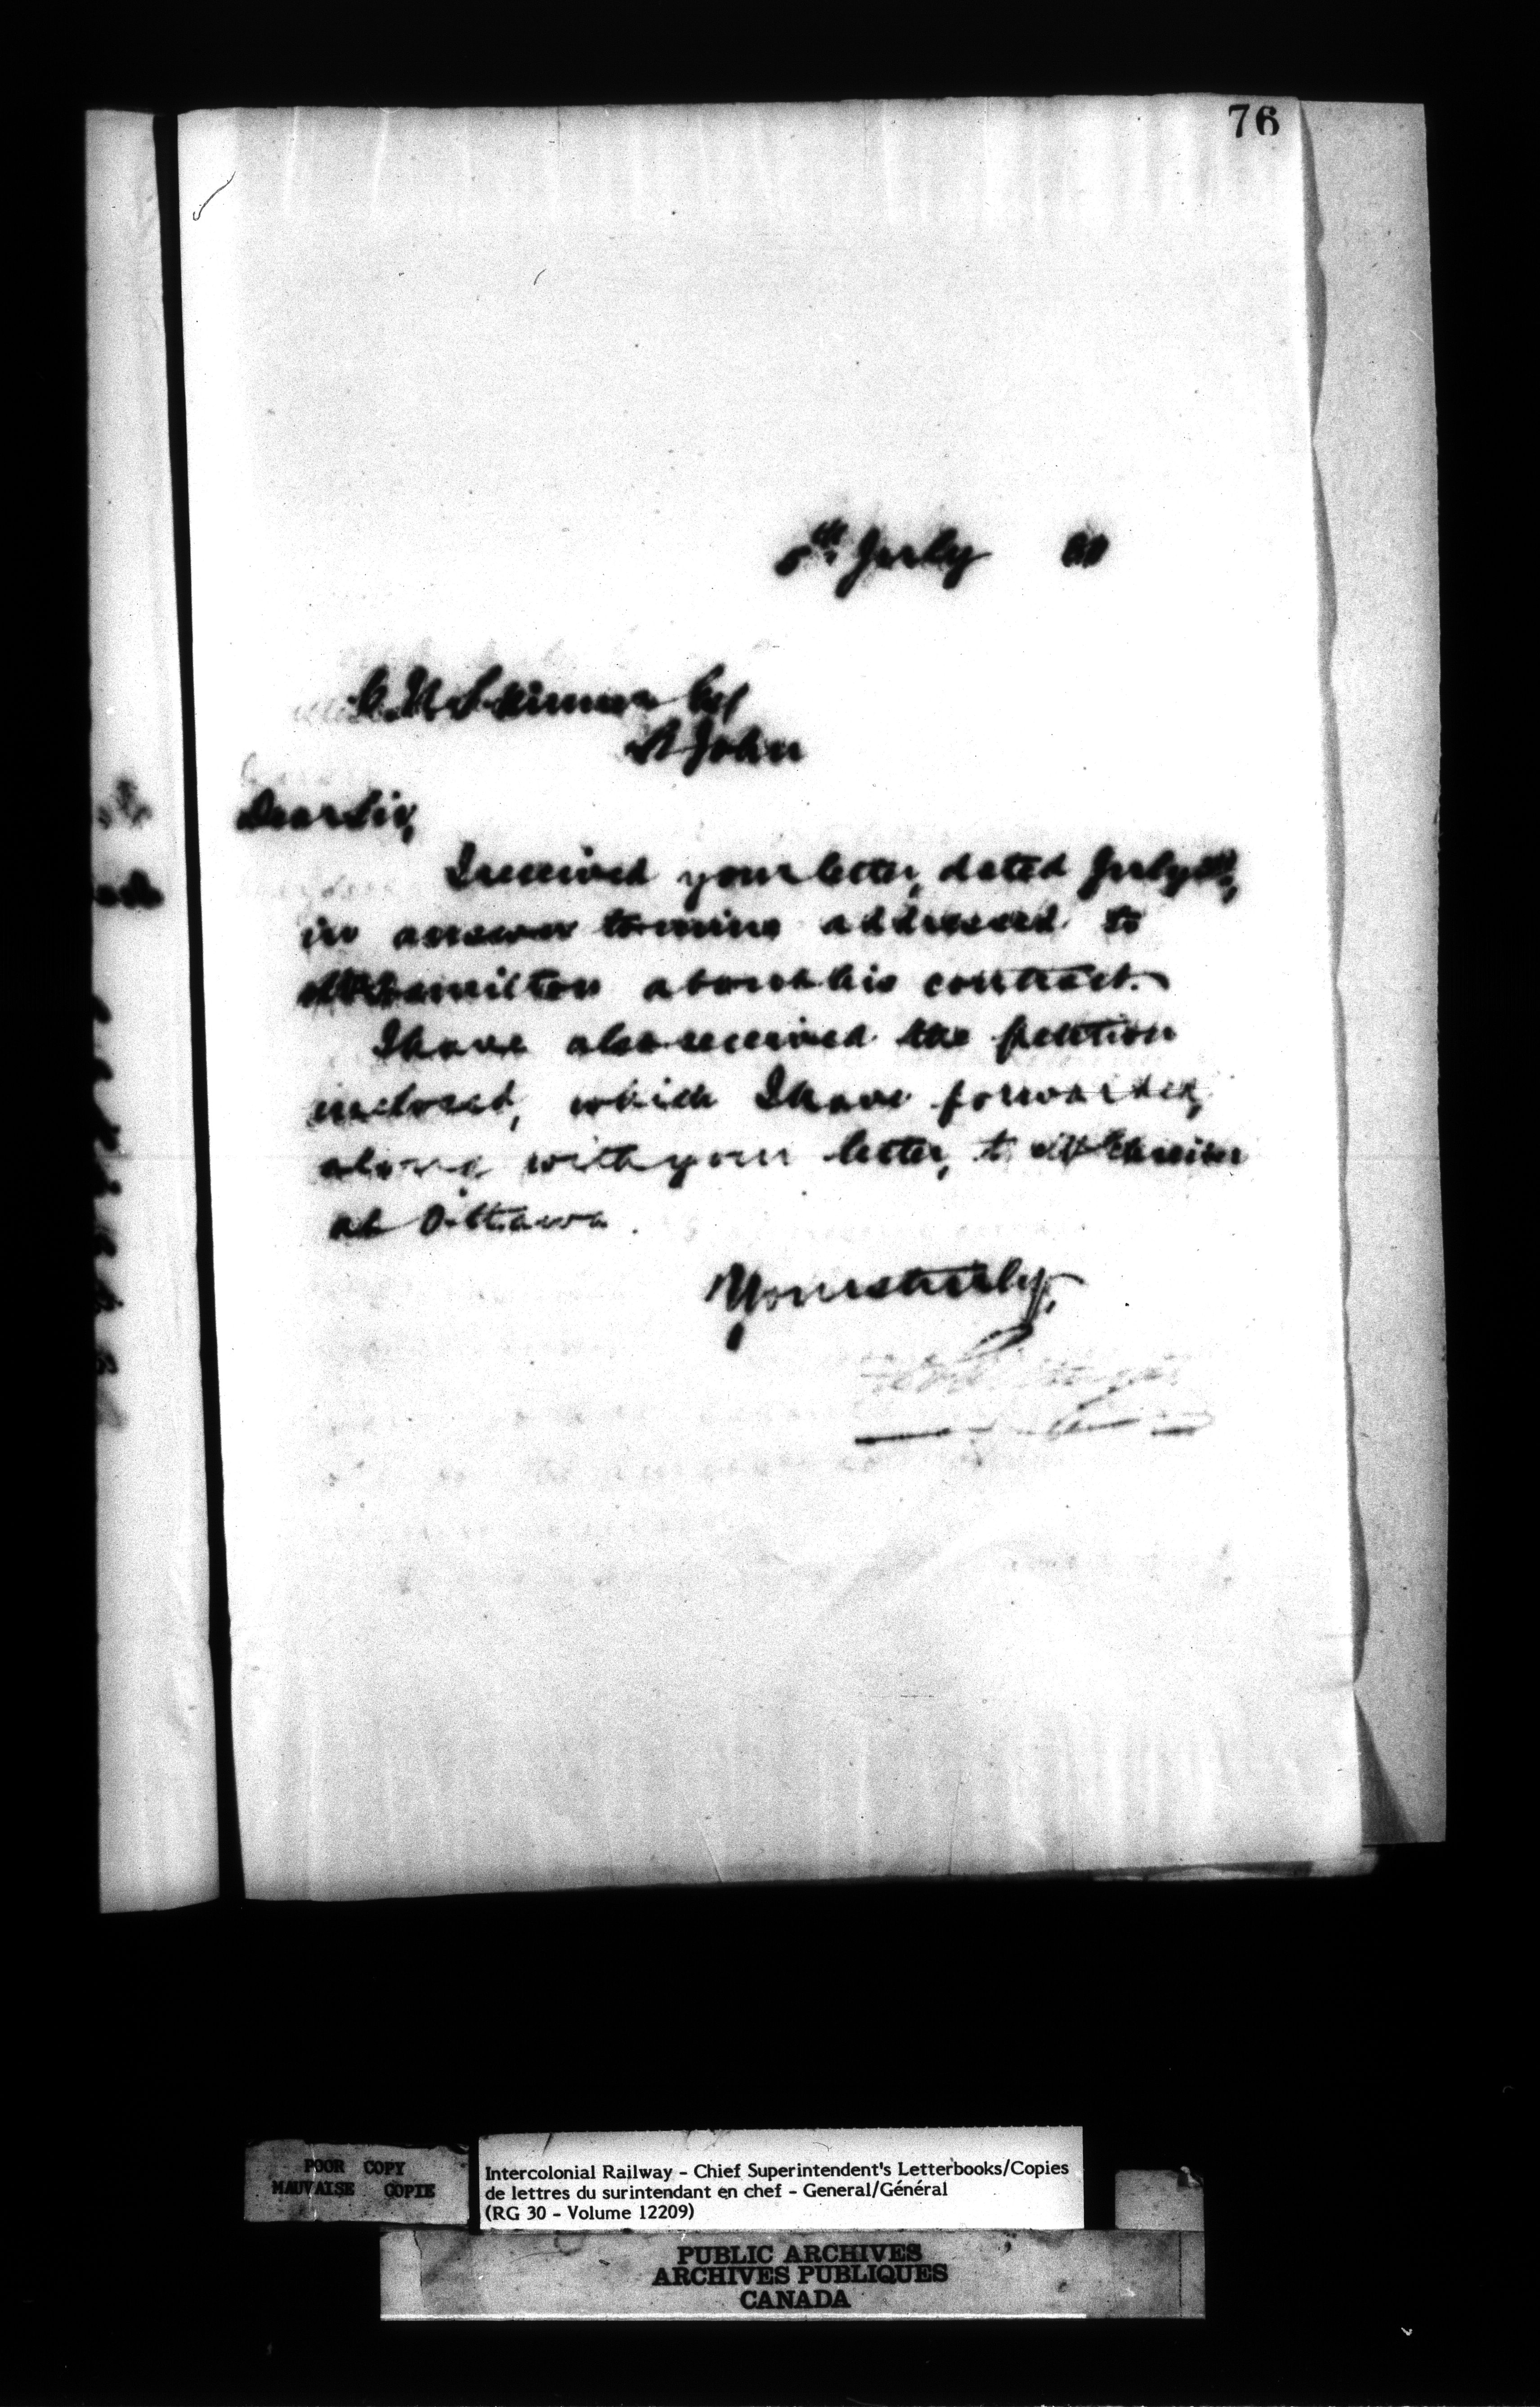 76
5th July 80
C. N. Skinner Esq
St John
Dear Sir,
I received your letter, dated July
in answer to mine addressed to
Mr Hamilton about his contract.
I have also received the petition
inclosed, which I have forwarded,
along with your letter, to Mr
at Ottawa.
Yours truly,
POOR COPY
MAUVAISE COPIE
Intercolonial Railway - Chief Superintendent's Letterbooks/Copies
de lettres du surintendant en chef - General/Général
(RG 30 - Volume 12209)
PUBLIC ARCHIVES
ARCHIVES PUBLIQUES
CANADA